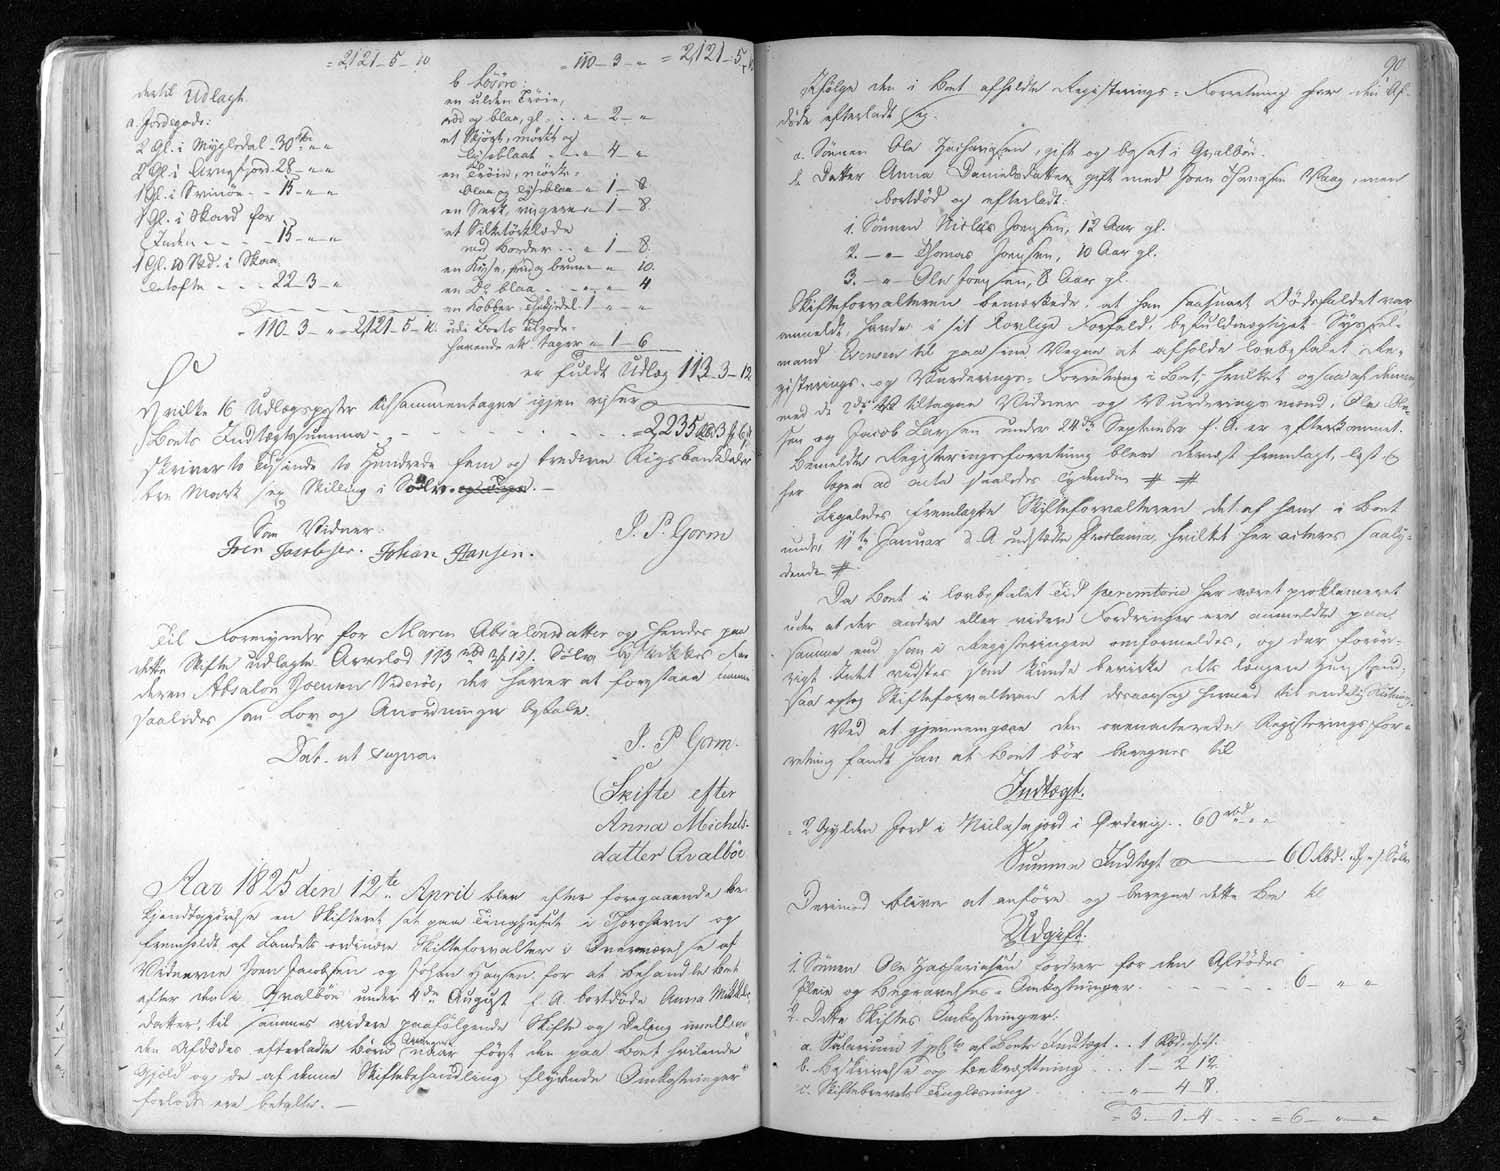 = 2121 - 5 - 10.
dertil Udlagt
a. Jordegods:
2 Gl. i Mygledal - 30 rbd „ „
2 Gl. i Arnefjord - 28 - „ „
1 Gl. i Svinöe - - 15 - „ „
1 Gl. i Skard for
Inden - - - - 15 - „ „
1 Gl. 10 Skd. i Skaa
letofte - - - 22 - 3 - „
= 110 - 3 - „ = 2121 - 5 - 10.
= 110 - 3 - „ = 2121 - 5
b Lösöre:
en ulden Tröie,
röd og blaa, gl. . . . „ 2 - „
et Skjört, mörkt og
lyseblaat . . . „ 4 - „
en Tröie, mörk-
blaa og lyseblaa - „ 1 - 8.
en Særk, ringere „ 1 - 8.
et Silketörklæde
med Border . . „ 1 - 8.
en Kyse, brun „ „ 10.
en Do blaa . . . . „ „ 4
en Kobber Theekjedel 1 „ „
udi Boets tilgode-
havende tager „ 1 - 6
er fuldt Udlæg 113 - 3 - 12
Hvilke 16 Udlægsposter tilsammentagne igjen viser
Boets Indtægtssumma - - - - = 2,235 Rbd. 3 ß 6
skriver to Tusinde to Hundrede fem og tredive Rigsbankdaler
tre Mark sex Skilling i Sölv. -
Som Vidner
Joen Jacobsen. Johan Hansen.
J. P. Gorm
Til Formynder for Maren Absalonsdatter og hendes paa
dette Skifte udlagte Arvelod 113 rbd 3 12 ß. Sölv beskikkes Fa-
deren Absalon Joensen Videröe, der haver at forestaae samme
saaledes som Lov og Anordninger befale.
Dat. ut supra.
J. P. Gorm.
Skifte efter
Anna Michels-
datter Qvalböe
Aar 1825 den 12te April blev efter foregaaende be-
kjendtgjörelse en Skifteret sat paa Tinghuset i Thorshavn og
fremholdt af Landets ordinære Skifteforvalter i Overværelse af
Vidnerne Joen Jacobsen og Johan Hansen for at behandle Boet
efter den i Qvalböe under 4de August f. A. bortdöde Anna Michels-
datter, til sammes videre paafölgende Skifte og Deling imellem
den Afdödes efterladte Börn og Arvinger, naar först den paa Boet hvilende
Gjæld og de af denne Skiftebehandling flydende Omkostninger
forlods ere betalte. -
90
Ifölge den i Boet afholdte Registerings-Forretning har den Af-
döde efterladt sig:
a. Sönnen Ole Zachariasen, gift og bosat i Qvalböe.
b. Datter Anna Danielsdatter gift med Joen Thomasen Vaag, men
bortdöd og efterladt:
1. Sönnen Niclas Joensen, 12 Aar gl.
2. - „ - Thomas Joensen, 10 Aar gl.
3. - „ - Ole Joensen, 8 Aar gl.
Skifteforvalteren bemærkede: at han saasnart Dödsfaldet var
anmeldt, havde i sit Lovlige Forfald, befuldmægtiget Syssel-
mand til paa sine Vegne at afholde lovbefalet Re-
gisterings- og Vurderings-Forretning i Boet; hvilket ogsaa af denne
med de 2de tiltagne Vidner og Vurderingsmænd, Ole Ole-
sen og Jacob Larsen under 24de September f. A. er efterkommet.
Bemeldte Registeringsforretning blev dernæst fremlagt, læst og
her ad acta saaledes lydende # #
Ligeledes fremlagte Skifteforvalteren det af ham i Boet
under 11te Januar d. A. udstædte Proclama, hvilket her acteres saaly-
dende #
Da Boet i lovbefalet Tid peremtorie har været proklameret
uden at der andre eller videre Fordringer ere anmeldte paa
samme end som i Registeringen ommeldes, og der foröv-
rigt Intet vidstes som kunde bevirke dets længere Henstand,
saa optog Skifteforvalteren det desaarsag hermed til endelig Slutning.
Ved at gjennemgaae den ovenacterede Registeringsfor-
retning fandt han at Boet bör beregnes til
Indtægt.
= 2 Gylden Jord i Niclasajord i Ördevig . . 60 rbd „ „
Summa Indtægt - 60 Rbd. „ ß „ Sölv
Derimod bliver at anföre og beregne dette Boe til
Udgift.
1. Sönnen Ole Zachariasen fordrer for den Afdödes
Pleie og Begravelses-Omkostninger - - - - - 6 - „ „
2. Dette Skiftes Omkostninger:
a. Salarium 1 pCto af Boets Indtægt . . 1 Rbd.
b. Beskrivelse og Bekræftning . . . 1 - 2 12.
c. Skiftebrevets Tinglæsning . . . „ - 4 - 8.
= 3 - 1 - 4 . . . . = 6 - „ „